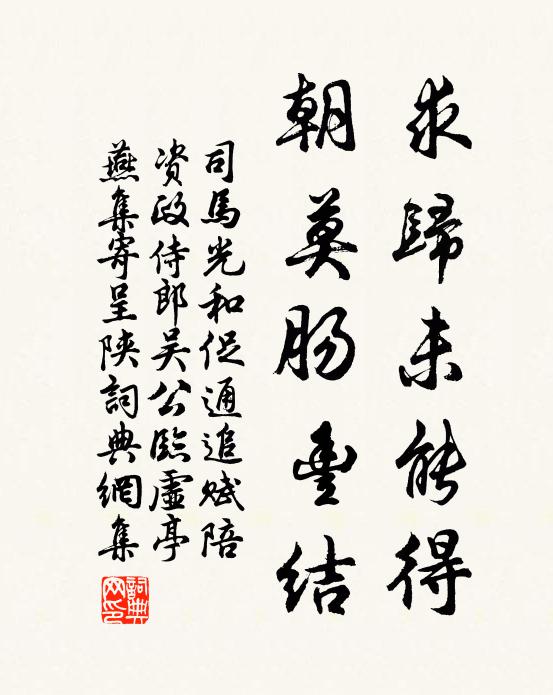 求歸未能得
朝莫腸結
司馬光和促通追賦陪
資政侍郎吳公臨虛亭
燕集寄呈陝詞典網集
詞典網印